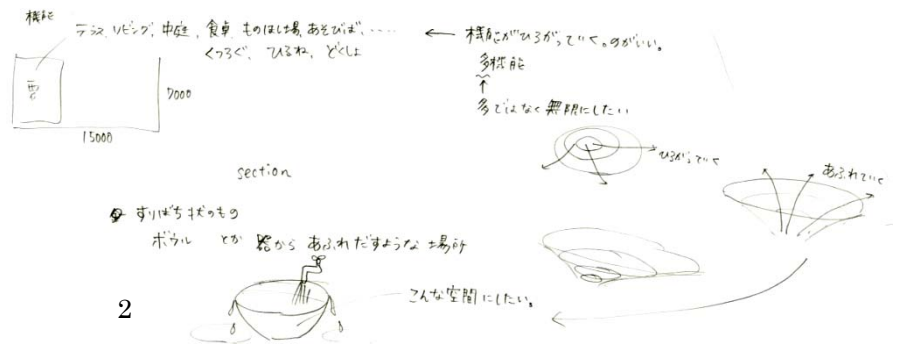 機能
テラス、リビング、中庭、食卓、ものほし場、あそびば、‥‥
くつろぐ、ひるね、どくしょ
← 機能がひろがっていく。のがいい。
多機能
↑
多ではなく無限にしたい
7000
15000
ひろがっていく
あふれていく
section
すりばち状のもの
ボウル とか 器から あふれだすような場所
こんな空間にしたい。
2